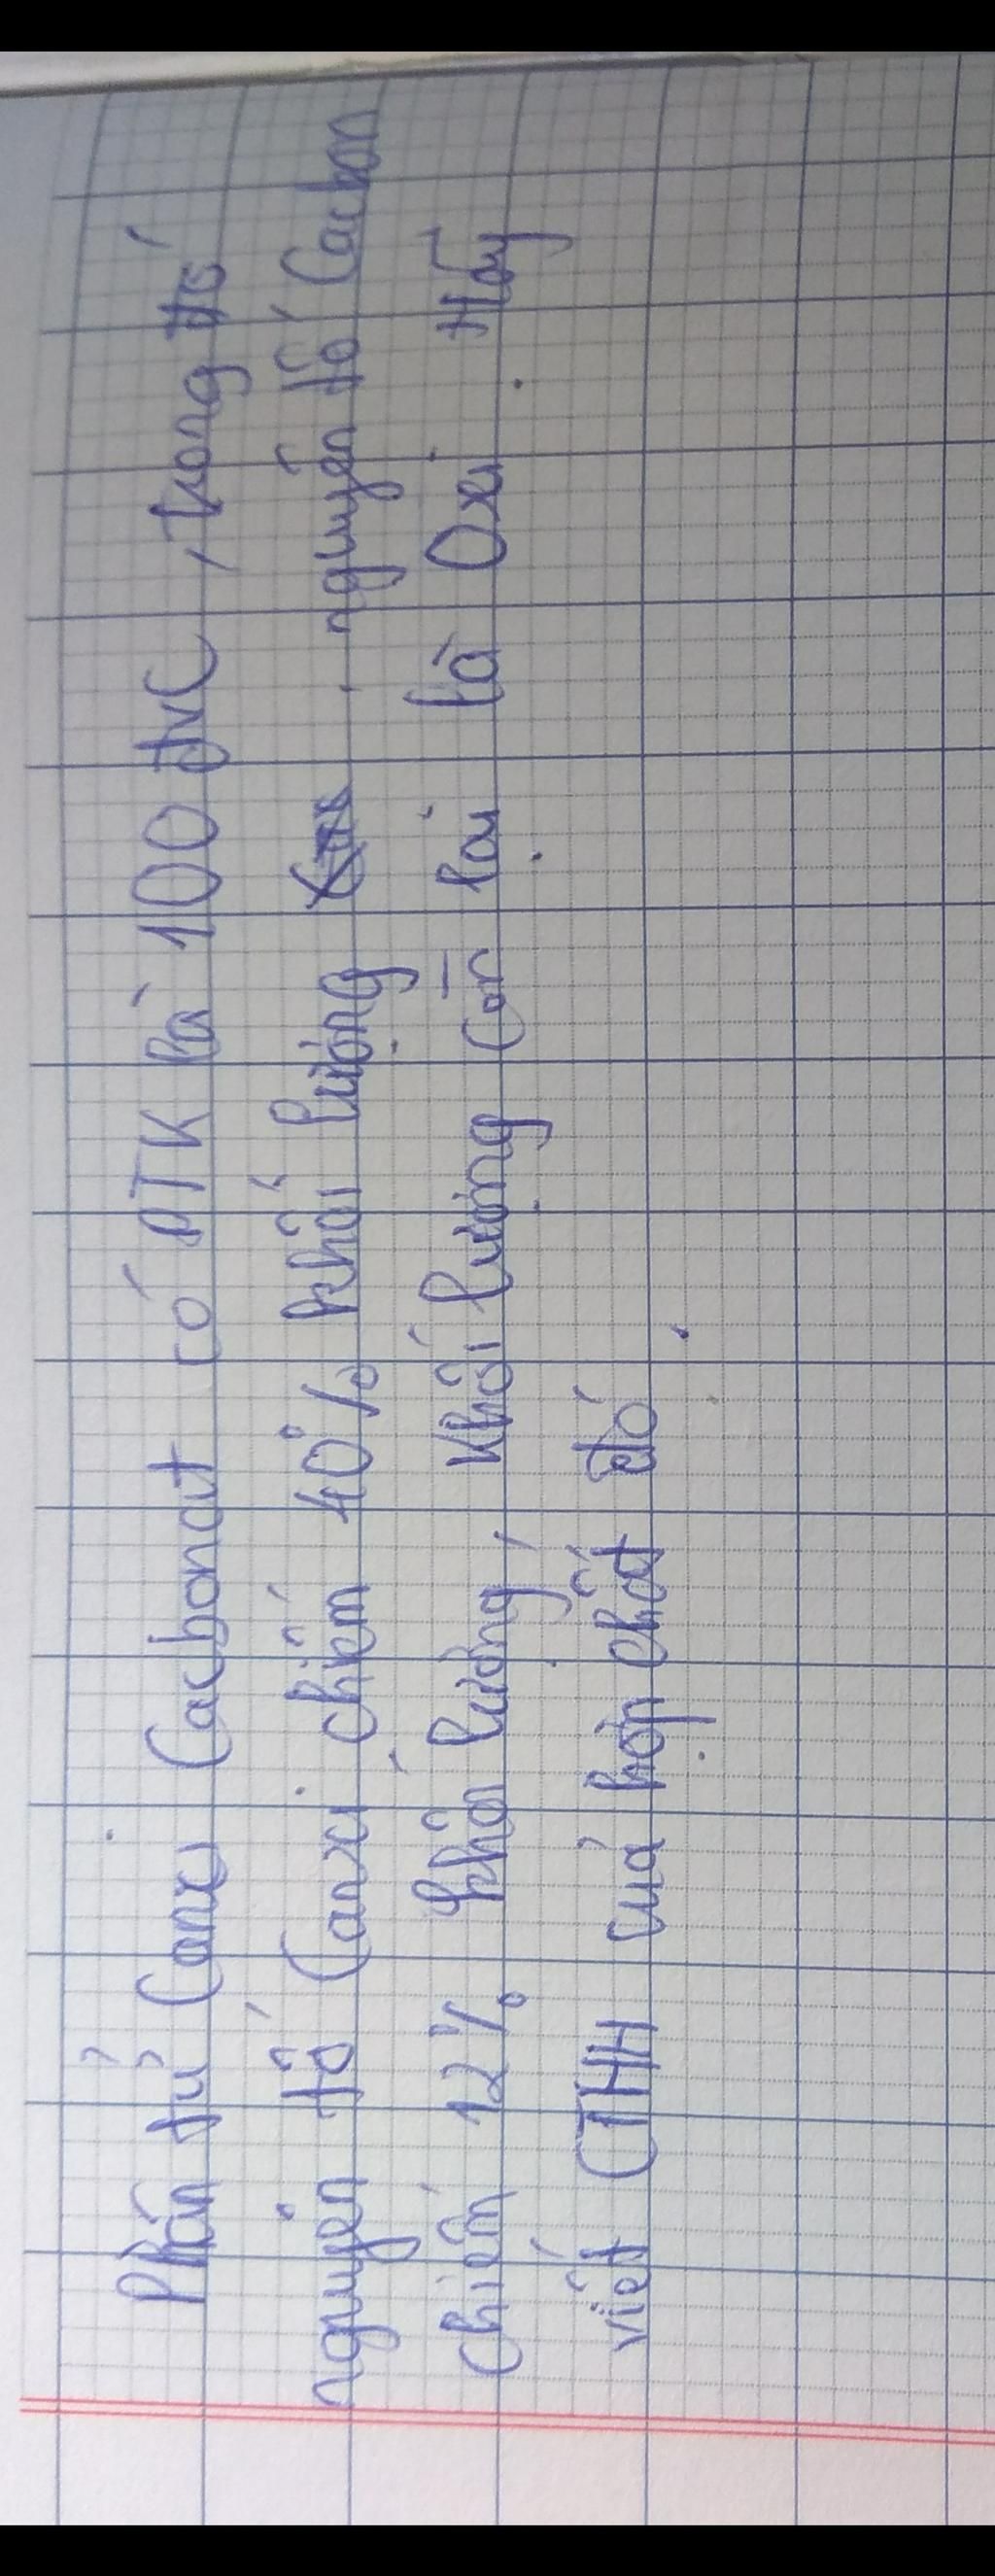 Phân tử Canxi Cacbonat có PTK là 100 đvC, trong đó
nguyên tố Canxi chiếm 40% khối lượng . nguyên tố Cacbon
chiếm 12% khối lượng, Khối lượng còn lại là Oxi. Hãy
viết CTHH của hợp chất đó.